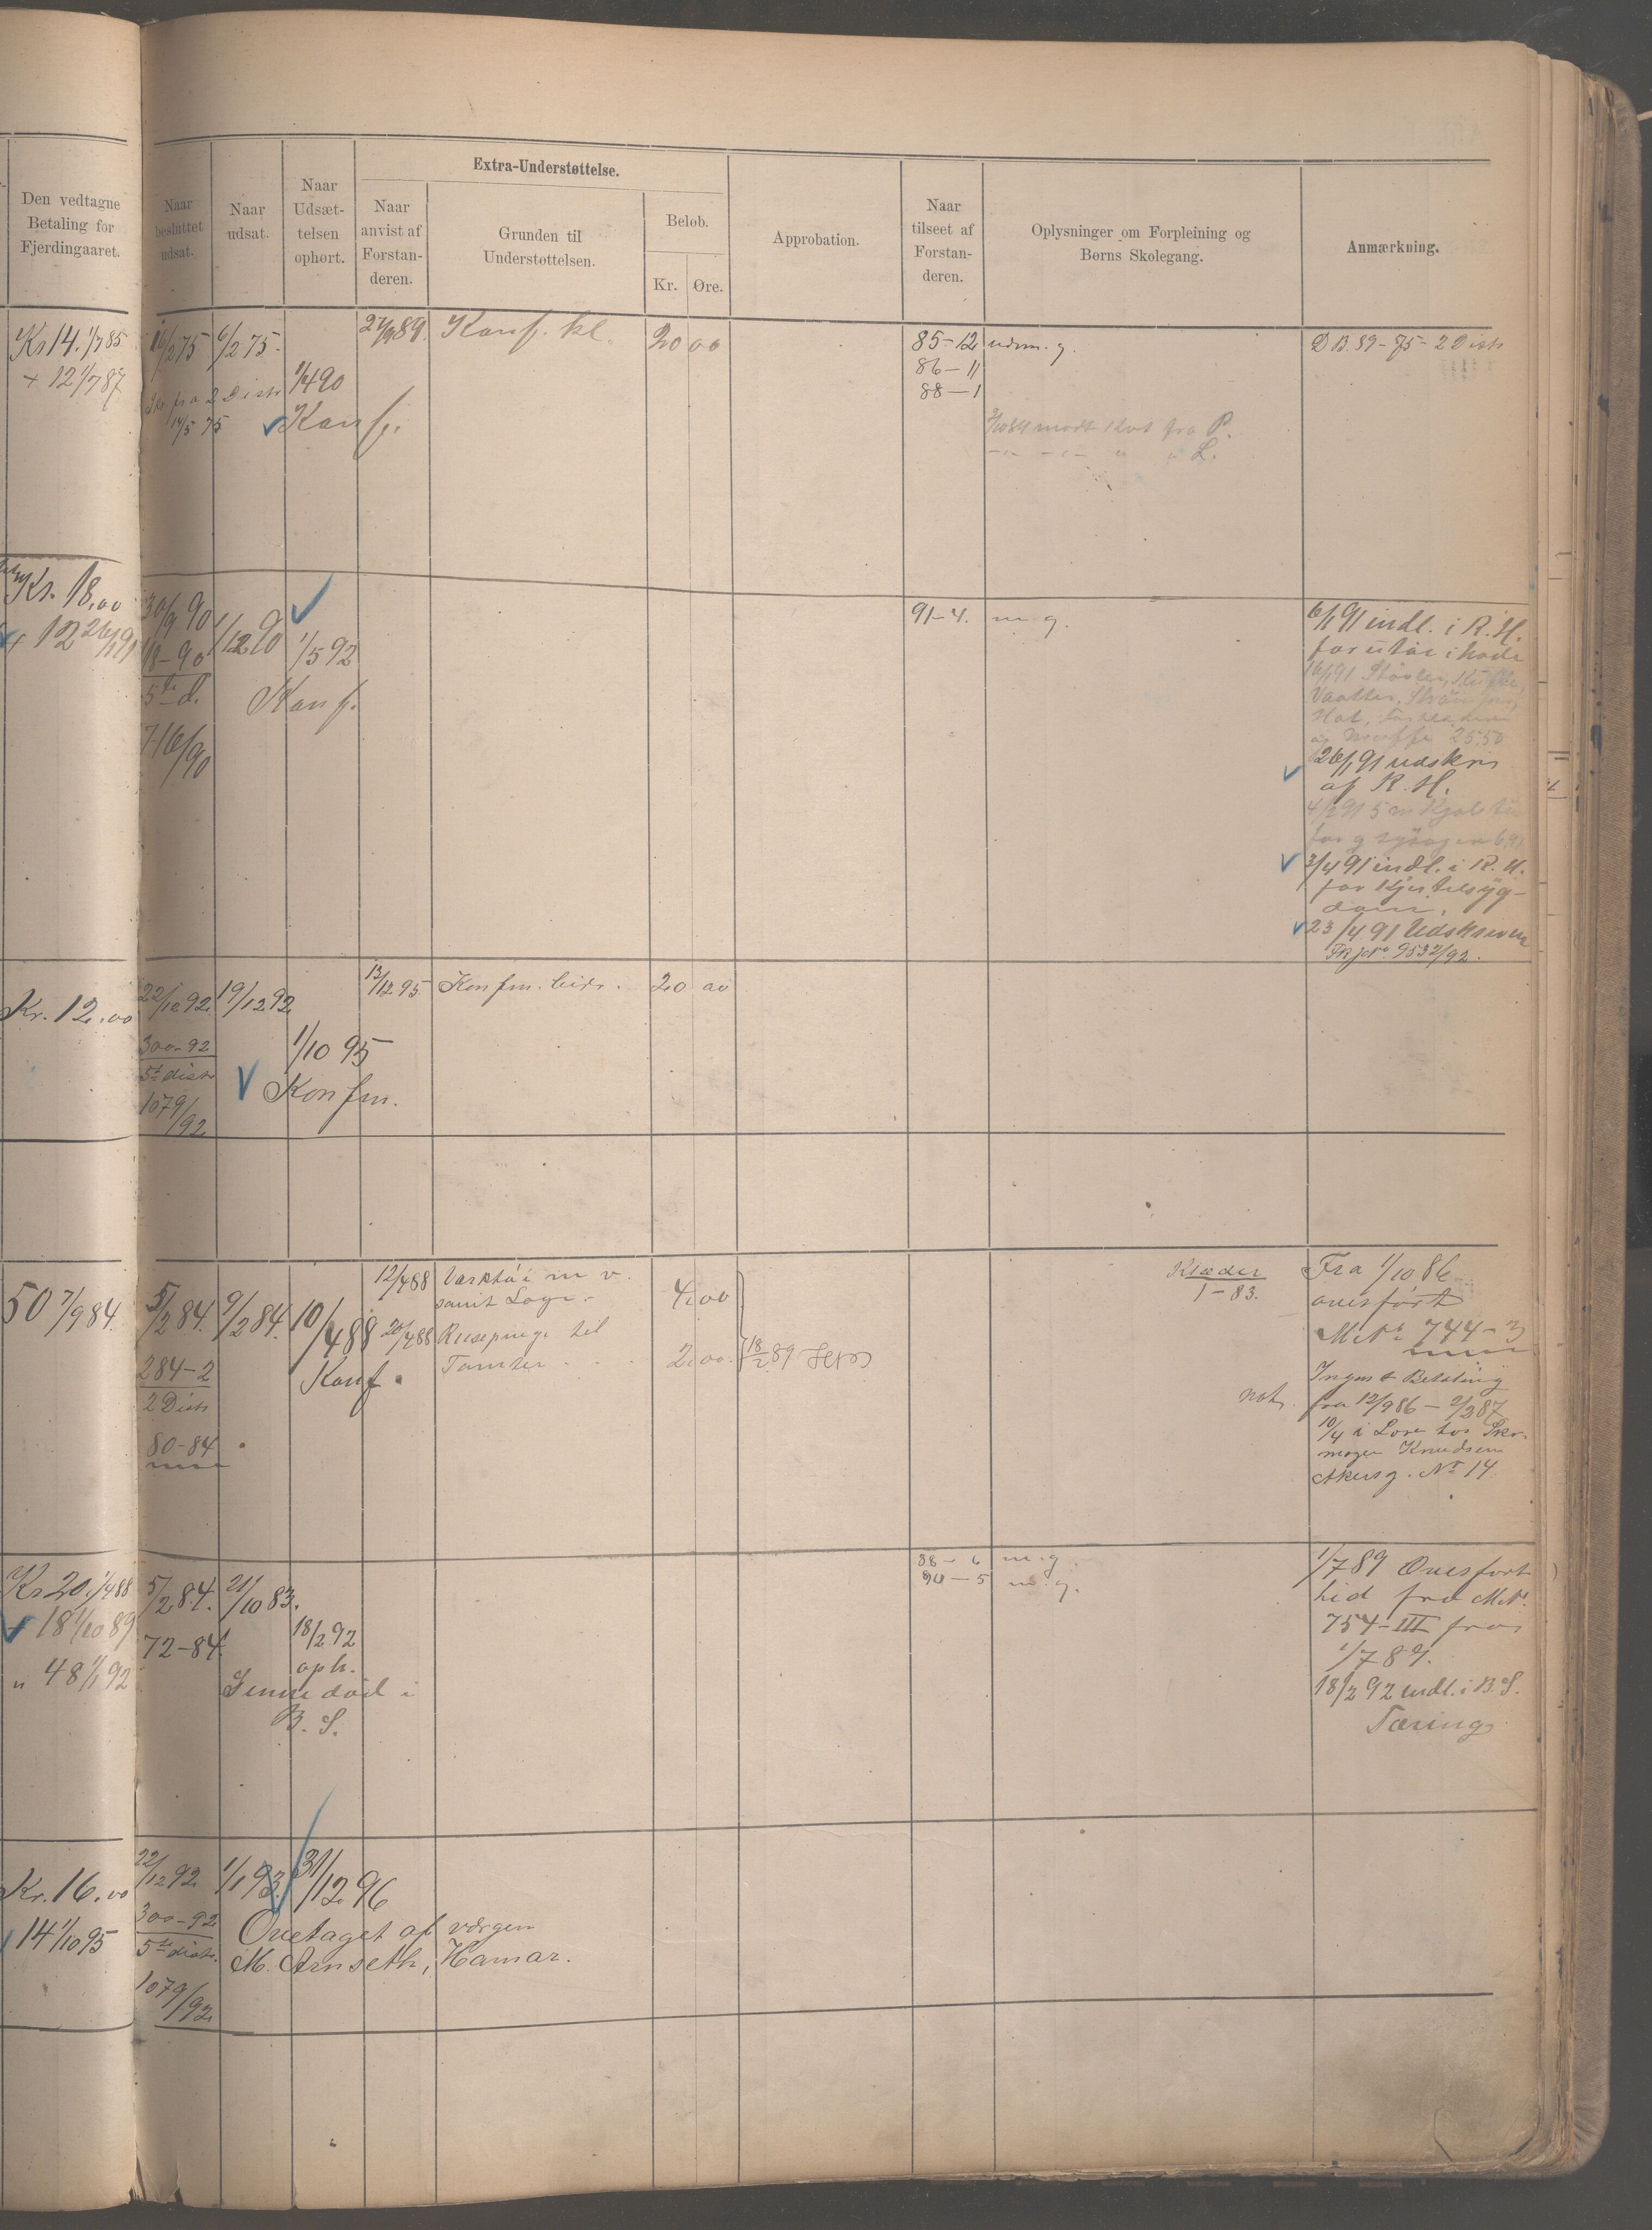 Den vedtagne
Betaling for
Fjerdingaaret.
Naar
besluttet
udsat.
Naar
udsat.
Naar
Udsæt-
telsen
ophørt.
Extra-Understøttelse.
Naar
anvist af
Forstan-
deren.
Grunden til
Understøttelsen.
Beløb.
Kr.
Øre.
Approbation.
Naar
tilseet af
Forstan-
deren.
Oplysninger om Forpleining og
Børns Skolegang.
Anmærkning.
Kr 14. 1/7 85
+ 12 1/7 87
16/2 75
fra 2 Distr
14/5 75
6/2 75.
1/4 90
Konf.
Konf. kl.
20 00
85-12 udm. g.
86-11
88-1
fra P.
L.
D B. 89-75-2 Distr
Kr. 18,00
+ 12 26/1 91
30/9 90
18-90
5te d.
716/90
1/12 90
1/5 92
Konf.
91-4. m. g.
6/1 91 indl. i R. H.
for utøi i hode
16/1 91 Støvler,
Hat,
25,50
26/1 91 udskr
af R. H.
3/4 91 indl. i R. H.
for Kjertelsyg-
dom.
23/4 91 Udskreven
953 2/92.
Kr. 12,00
22/12 92
300-92
5te distr
1079/92
19/12 92
1/10 95
Konfm.
13/12 95 Konfm. bidr. 20 00
50 7/9 84.
5/2 84.
284-2
2 Distr
80-84
9/2 84.
10/4 88
Konf.
12/4 88 Værktøi m v.
samt Logi 4,00
20/4 88 Reisepenge til
Tomter 2,00
18/2 89
Klæder
1-83.
Fra 1/10 86
overført
M.Nr. 744-3
not.
Ingen Betaling
fra 12/9 86 - 2/2 87
10/4 i Lære hos Sko-
mager Knudsen
Akersg. No 14.
Kr 20 1/4 88
+ 18 1/10 89
" 48 1/1 92
5/2 84.
72-84.
21/10 83.
18/2 92
oph.
Senne død i
B. S.
88-6 m. g.
90-5 m. g.
1/7 89 Overført
hid fra M.Nr.
754-III fra
1/7 89.
18/2 92 indl. i B. S.
Tæring
Kr. 16,00
14 1/10 95
22/12 92
300-92
5te distr.
1079/92
1/1 93.
31/12 96
Overtaget af værgen
M. Arnseth, Hamar.